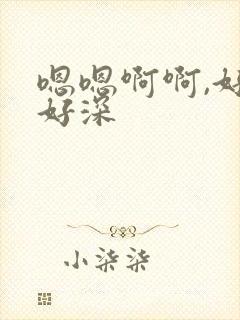 嗯嗯啊啊,好
好深
小柒柒